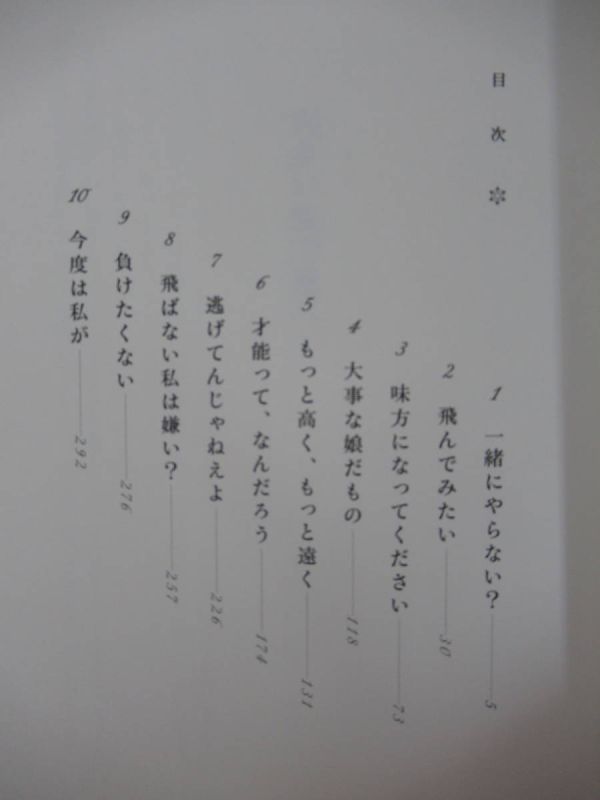 目次 ✽
1 一緒にやらない? 5
2 飛んでみたい 30
3 味方になってください 73
4 大事な娘だもの 118
5 もっと高く、もっと遠く 131
6 才能って、なんだろう 174
7 逃げてんじゃねえよ 226
8 飛ばない私は嫌い? 257
9 負けたくない 276
10 今度は私が 292